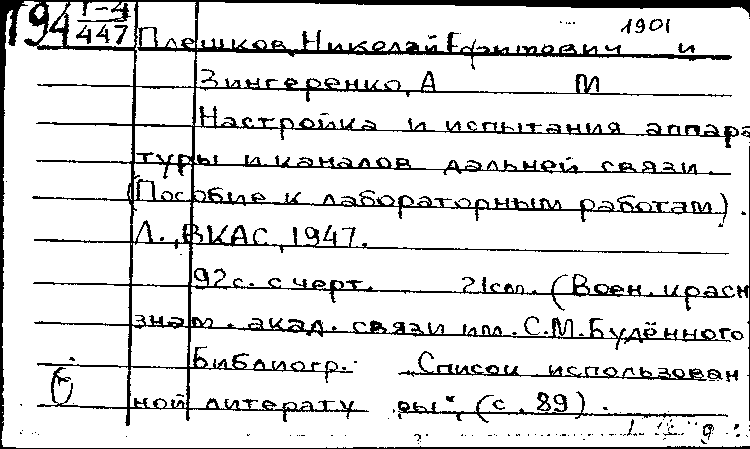 194 Г-4/447
1901
Плешков, Николай Ефимович и
Зингеренко, А М
Настройка и испытания аппара
туры и каналов дальней связи.
(Пособие к лабораторным работам).
Л., ВКАС, 1947.
92с. с черт. 21см. (Воен. красн
знам. акад. связи им. С.М.Будённого
Библиогр.: „Список использован
ной литерату ры", (с. 89).